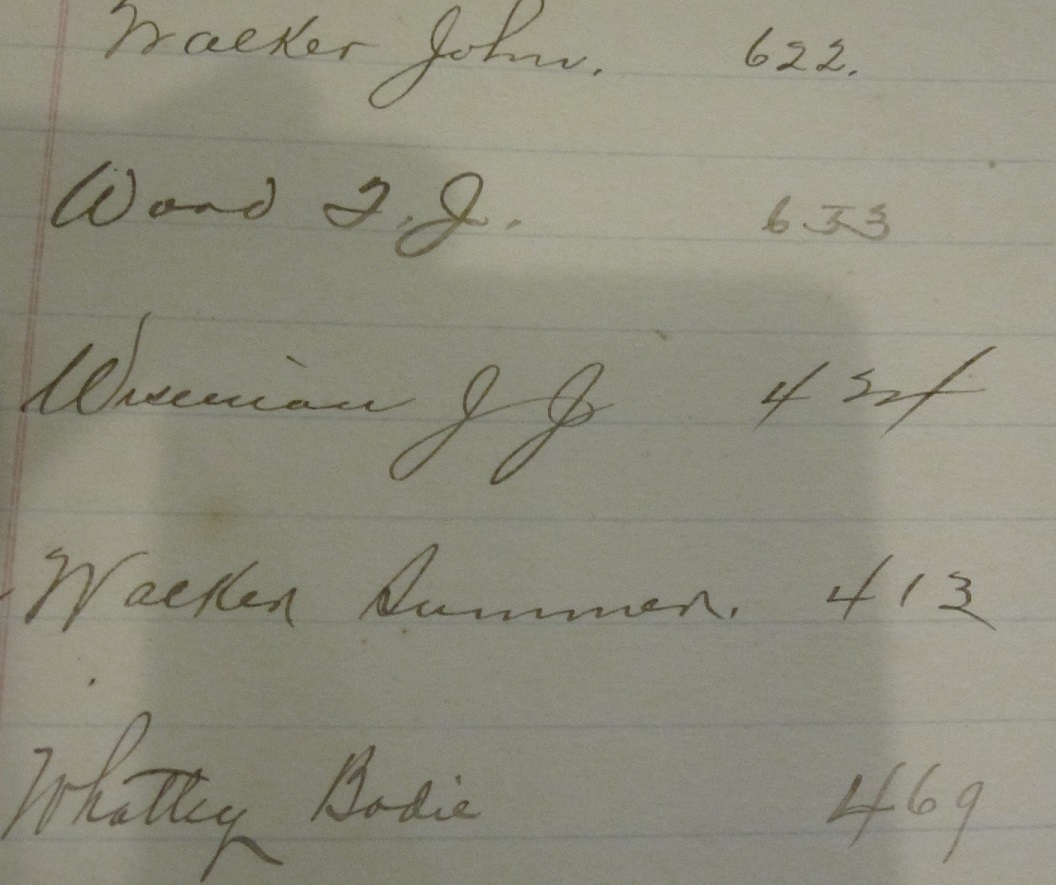 Walker John. 622.
Wood T. J. 633
Wiseman J J
Walker Summer. 413
Whatley Bodie 469